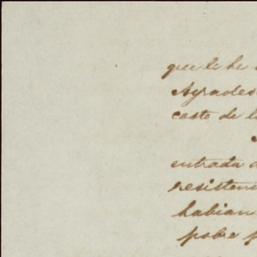 que le he
Agrades
casto de l
entrada
resistenc
habian
pobre p